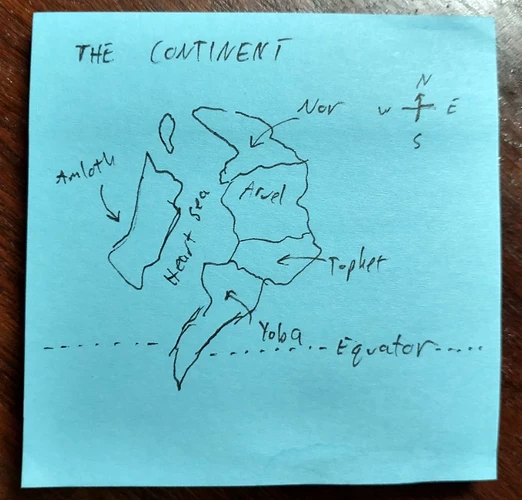 THE CONTINENT
N
W E
S
Nor
Amloth
Arvel
Heart Sea
Topket
Yoba
Equator